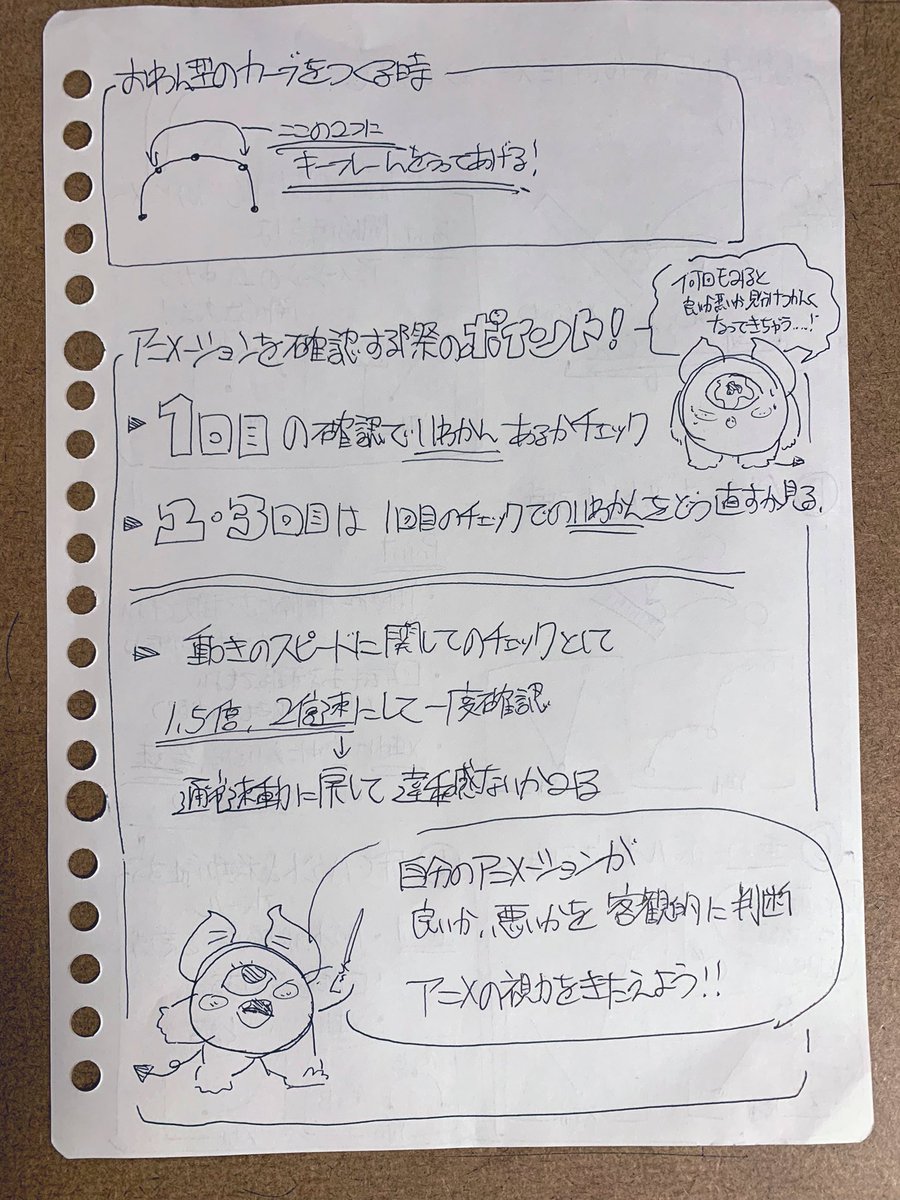 おわん型のカーブをつくる時
ここの2つに
キーフレームをうってあげる!
何回もみると
良いか悪いか見分けつかなく
なってきちゃう...!
アニメーションを確認する際のポイント!
1回目の確認でいわかんあるかチェック
2・3回目は1回目のチェックでのいわかんをどう直すか見る.
動きのスピードに関してのチェックとして
1.5倍、2倍速にして一度確認
↓
通常速動に戻して違和感ないかみる
自分のアニメーションが
良いか、悪いかを客観的に判断
アニメの視力をきたえよう!!